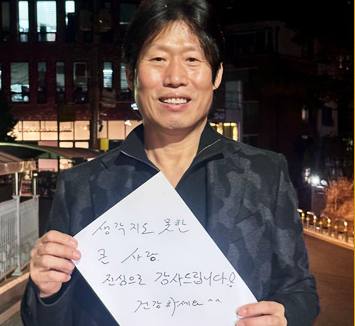 생각지도 못한
큰 사랑
진심으로 감사드립니다!
건강하세요 ^^